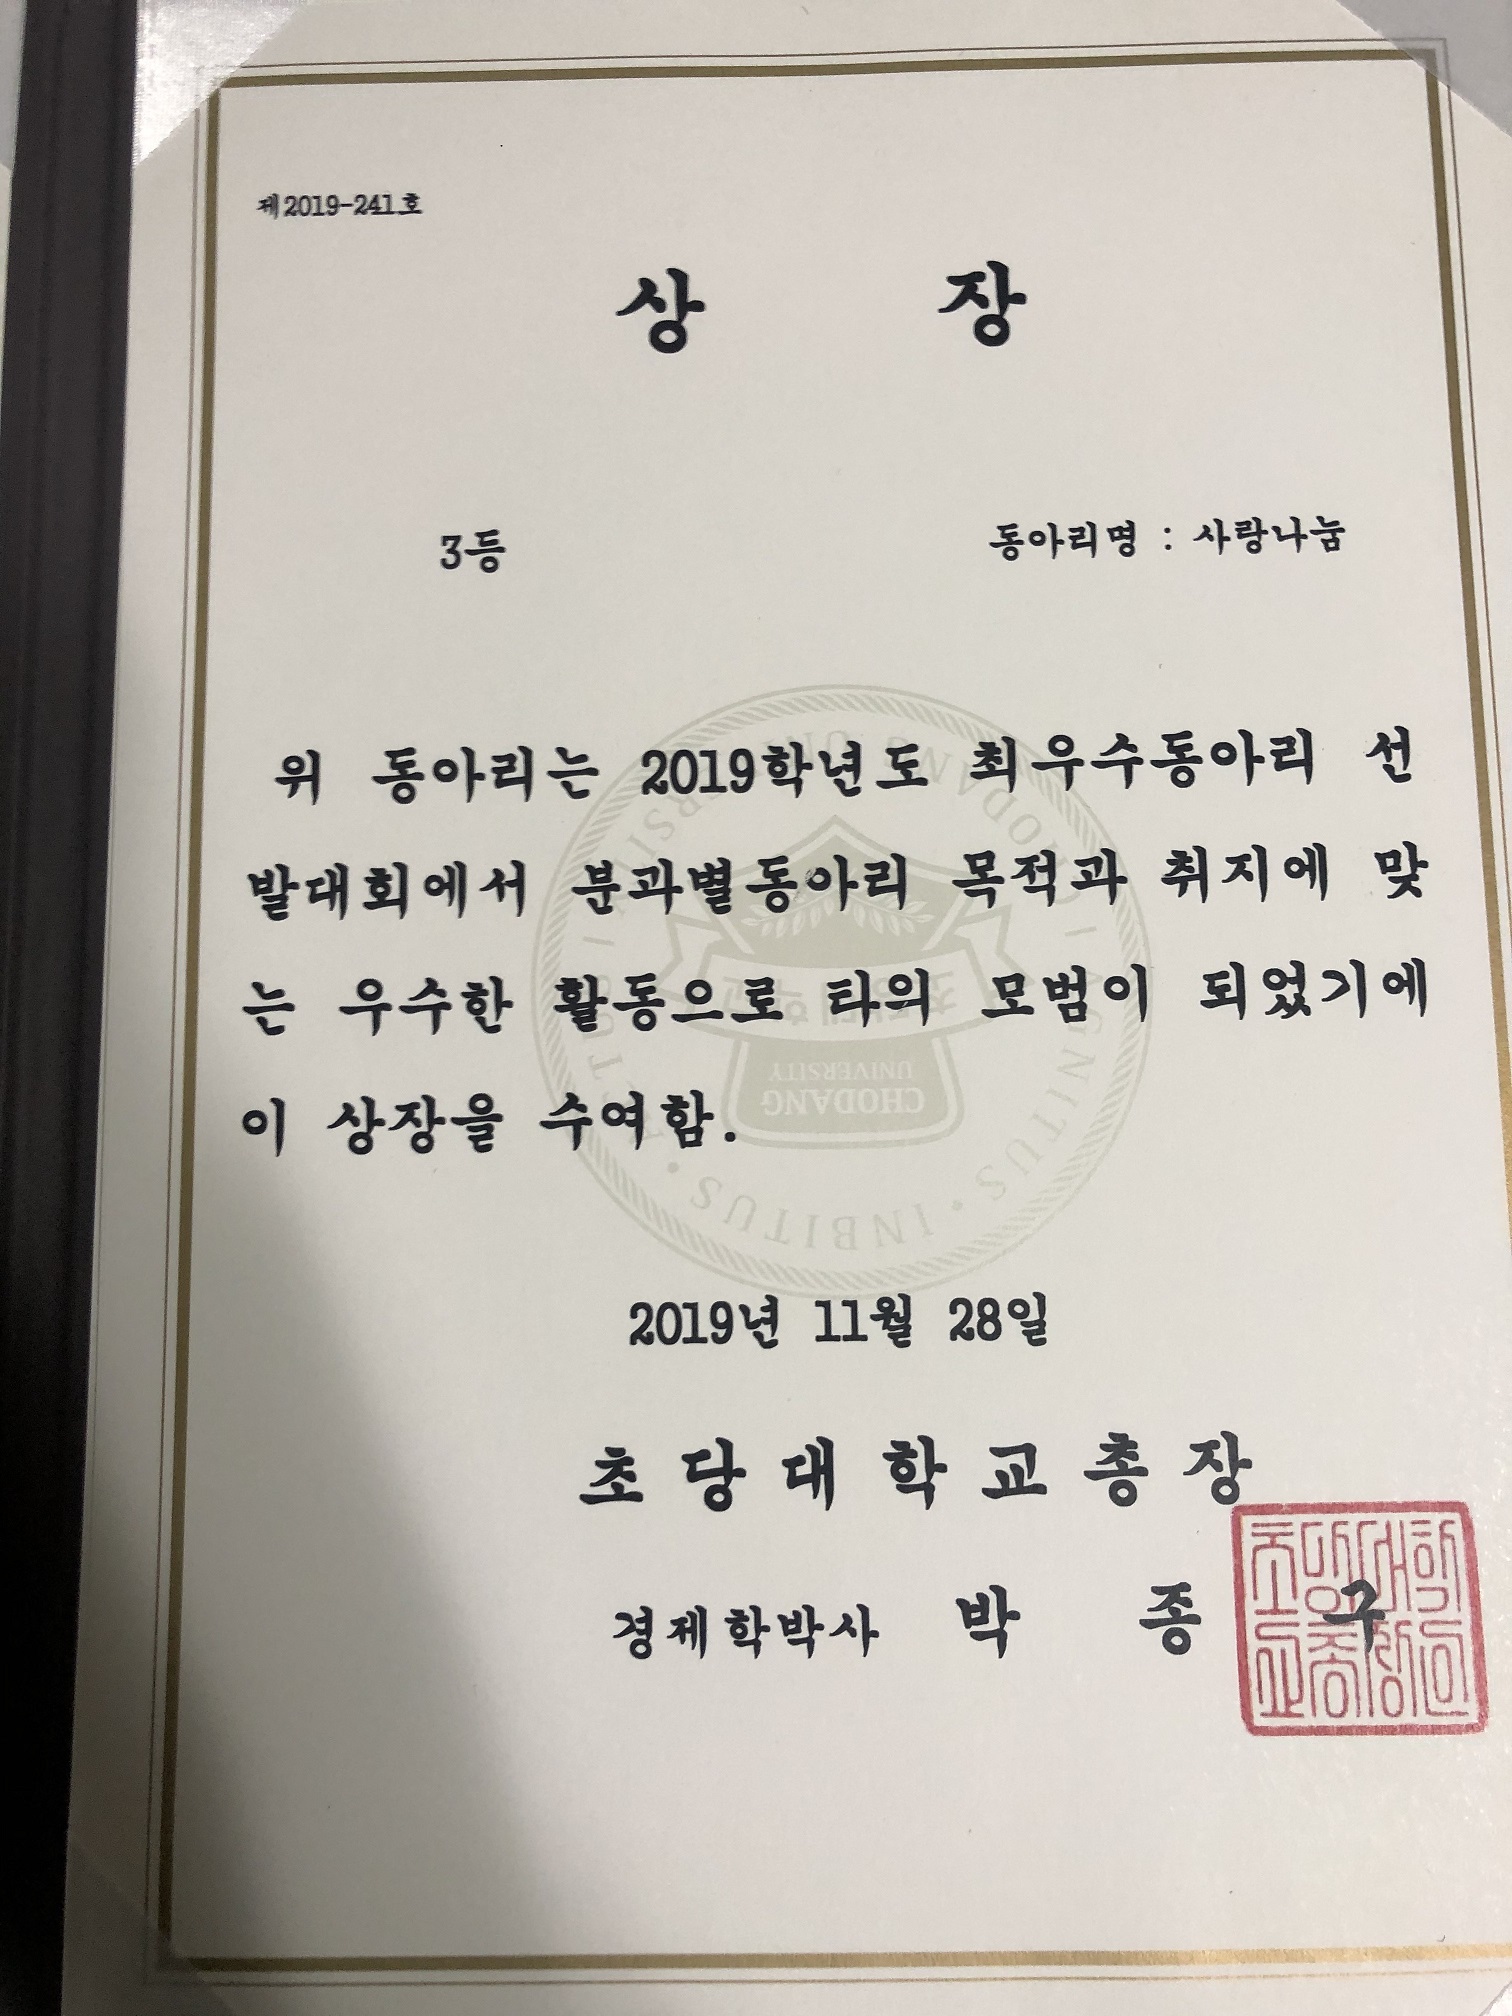 제2019-241호
상 장
3등 동아리명 : 사랑나눔
위 동아리는 2019학년도 최우수동아리 선
발대회에서 분과별동아리 목적과 취지에 맞
는 우수한 활동으로 타의 모범이 되었기에
이 상장을 수여함.
2019년 11월 28일
초당대학교총장
경제학박사 박 종 구
초당대학
교총장인
CHODANG
UNIVERSITY